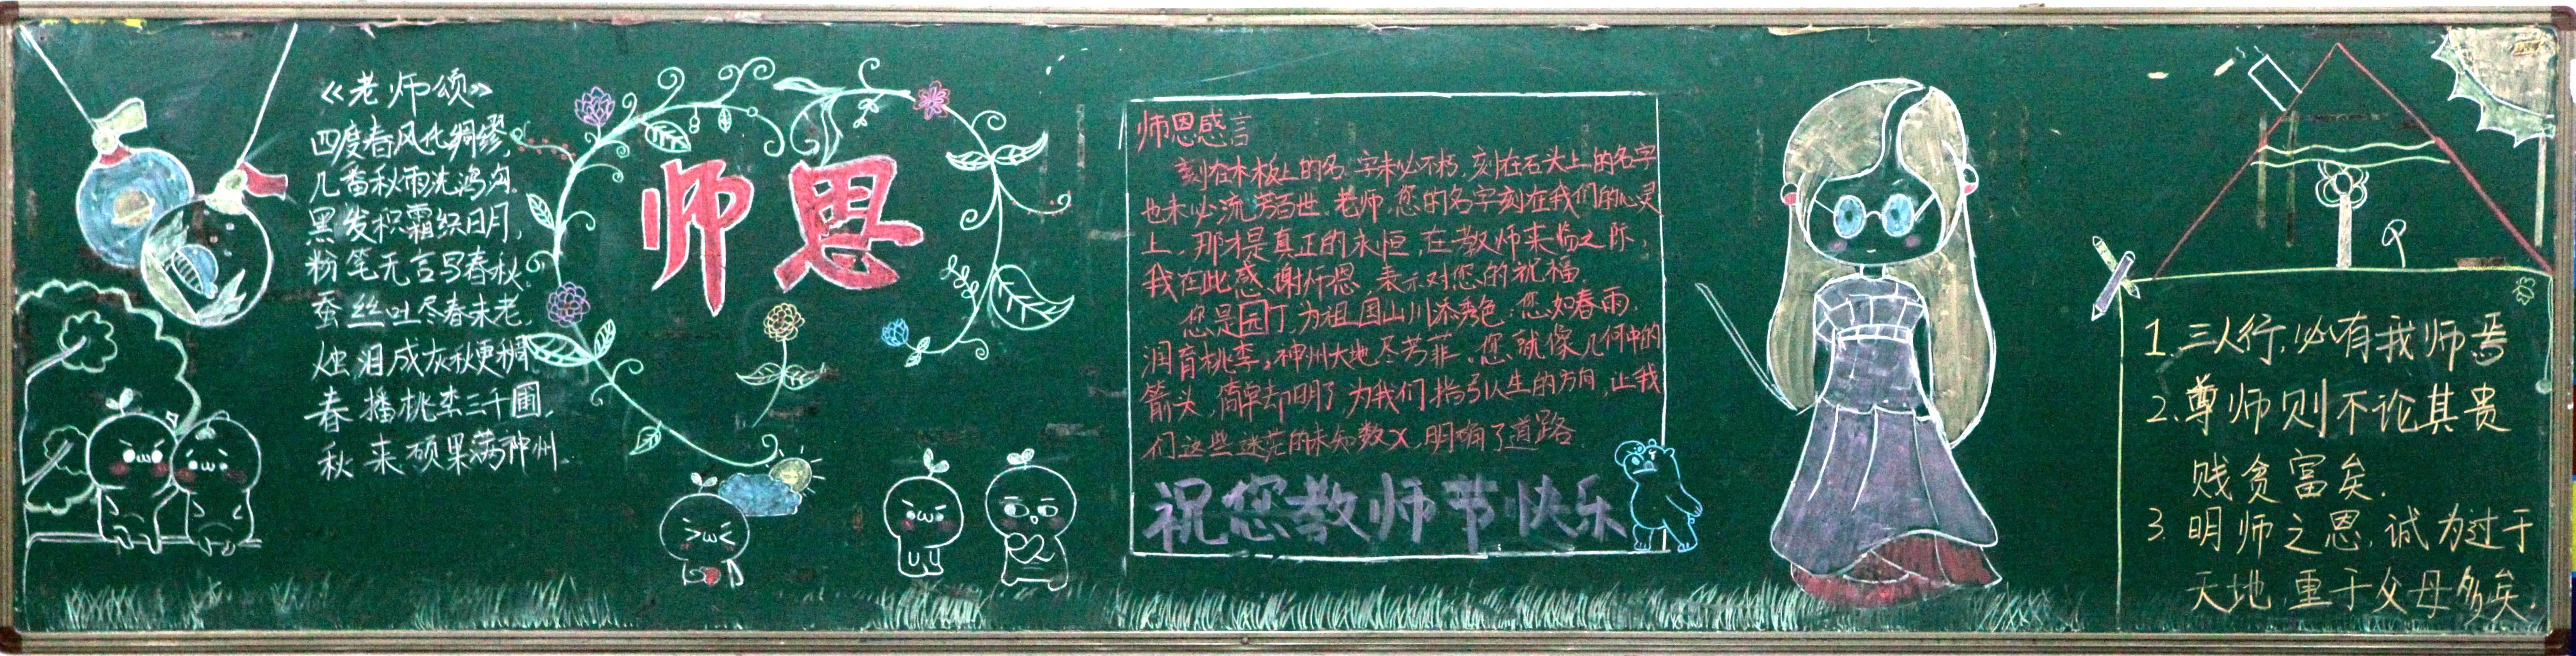 《老师颂》
四度春风化绸缪,
几番秋雨洗鸿沟.
黑发积霜织日月,
粉笔无言写春秋.
蚕丝吐尽春未老,
烛泪成灰秋更稠
春播桃李三千圃,
秋来硕果满神州.
师恩
师恩感言
刻在木板上的名字未必不朽,刻在石头上的名字
也未必流芳百世.老师,您的名字刻在我们的心灵
上,那才是真正的永恒,在教师来临之际,
我在此感谢师恩,表示对您的祝福.
您是园丁,为祖国山川添秀色;您如春雨,
润育桃李,神州大地尽芳菲。您就像几何中的
箭头,简单却明了,为我们指引人生的方向,让我
们这些迷茫的未知数X,明确了道路
祝您教师节快乐
1.三人行,必有我师焉
2.尊师则不论其贵
贱贫富矣.
3.明师之恩,诚为过于
天地,重于父母多矣.